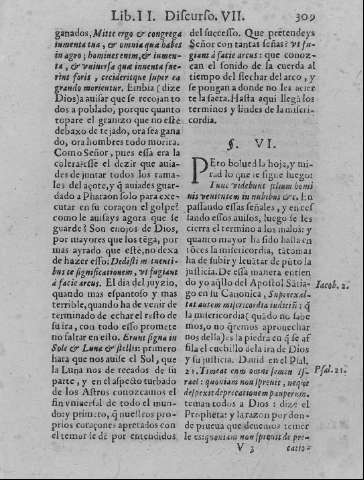 Lib. II. Discurso. VII. 309
ganados, Mitte ergo & congrega
iumenta tua, & omnia quæ habes
in agro; homines enim, & iumen-
ta, & vniuersa quæ inuenta fue-
rint foris, cecideritque super ea
grando morientur. Embia (dize
Dios) a auisar que se recojan to
dos a poblado, porque quanto
topare el granizo que no estè
debaxo de tejado, ora sea gana
do, ora hombres todo morira.
Como Señor, pues essa era la
colera? esse el dezir que auia-
des de juntar todos los rama-
les del açote, y q̃ auiades guar-
dado a Pharaon solo para exe-
cutar en su coraçon el golpe?
como le auisays agora que se
guarde? Son enojos de Dios,
por mayores que los tẽga, por
mas ayrado que estè, no dexa
de hazer esso: Dedisti metuenti-
bus te significationem, vt fugiant
à facie arcus. El dia del juyzio,
quando mas espantoso y mas
terrible, quando ha de venir de
terminado de echar el resto de
su ira, con todo esso promete
no faltar en esto. Erunt signa in
Sole & Luna & stellis: primero
hata que nos auise el Sol, que
la Luna nos de recados de su
parte, y en el aspecto turbado
de los Astros conozcamos el
fin vniuersal de todo el mun-
do: y primero, q̃ nuestros pro-
prios coraçones apretados con
el temor se dẽ por entendidos
del successo. Que pretendeys
Señor con tantas señas? vt fu-
giant à facie arcus: que conoz-
can el sonido de la cuerda al
tiempo del flechar del arco, y
se pongan a donde no les acier
te la saeta. Hasta aqui llegã los
terminos y lindes de la miseri-
cordia.
§. VI.
PEro bolued la hoja, y mi-
rad lo que se sigue luego:
Tunc videbunt filium homi
nis venientem in nubibus &c. En
passando essas señales, y en ces
sando essos auisos, luego se les
cierra el termino a los malos: y
en quanto mayor ha sido hasta en
tõces la misericordia, tãto mas
ha de subir y leuãtar de pũto la
justicia. De essa manera entien
do yo aq̃llo del Apostol Sãtia-
go en su Canonica, Superexal-
tat autem misericordia iudiciũ: q̃
la misericordia (quãdo no sabe
mos, o no q̃remos aprouechar
nos della) es la piedra en q̃ se a-
fila el cuchillo de la ira de Dios
y su justicia. Dauid en el Psal.
21. Timeat eum omne semen Is-
rael: quoniam non spreuit, neque
despexit deprecationem pauperum.
teman todos a Dios: dize el
Propheta: y la razon por don-
de prueua que deuemos temer
le es: quoniam non spreuit depre-
Iacob. 2.
Psal. 21.
V 3 catio-